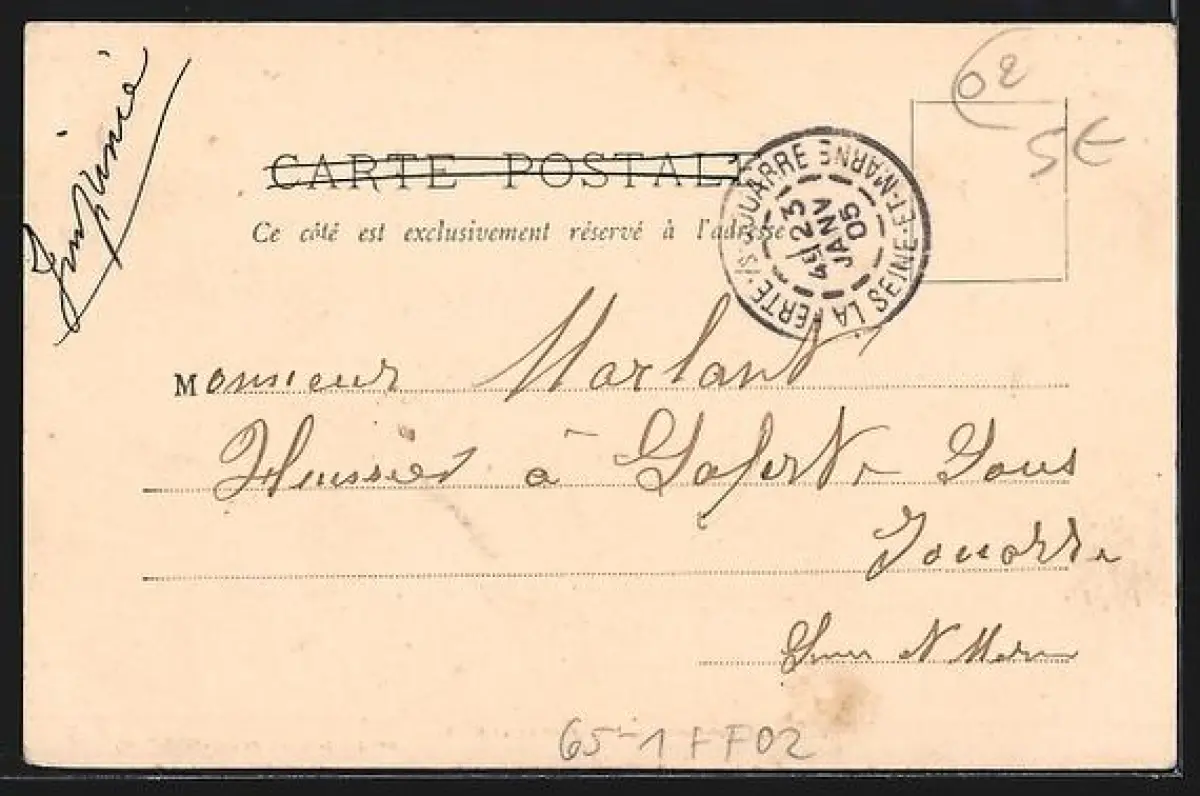 Imprimé
02
5€
CARTE POSTALE
Ce côté est exclusivement réservé à l'adresse
LA FERTE-S-JOUARRE SEINE-ET-MARNE
4E
23
JANV
05
Monsieur Marlant
Huissier à Laferté Sous
Jouarre
Seine et Marne
65-1FF02